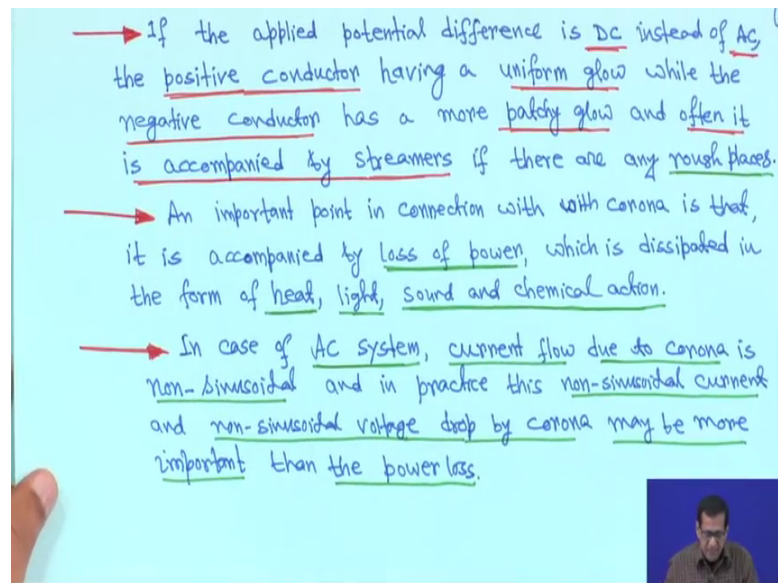 If the applied potential difference is DC instead of AC,
the positive conductor having a uniform glow while the
negative conductor has a more patchy glow and often it
is accompanied by streamers if there are any rough places.
An important point in connection with with corona is that,
it is accompanied by loss of power, which is dissipated in
the form of heat, light, sound and chemical action.
In case of AC system, current flow due to corona is
non-sinusoidal and in practice this non-sinusoidal current
and non-sinusoidal voltage drop by corona may be more
important than the power loss.